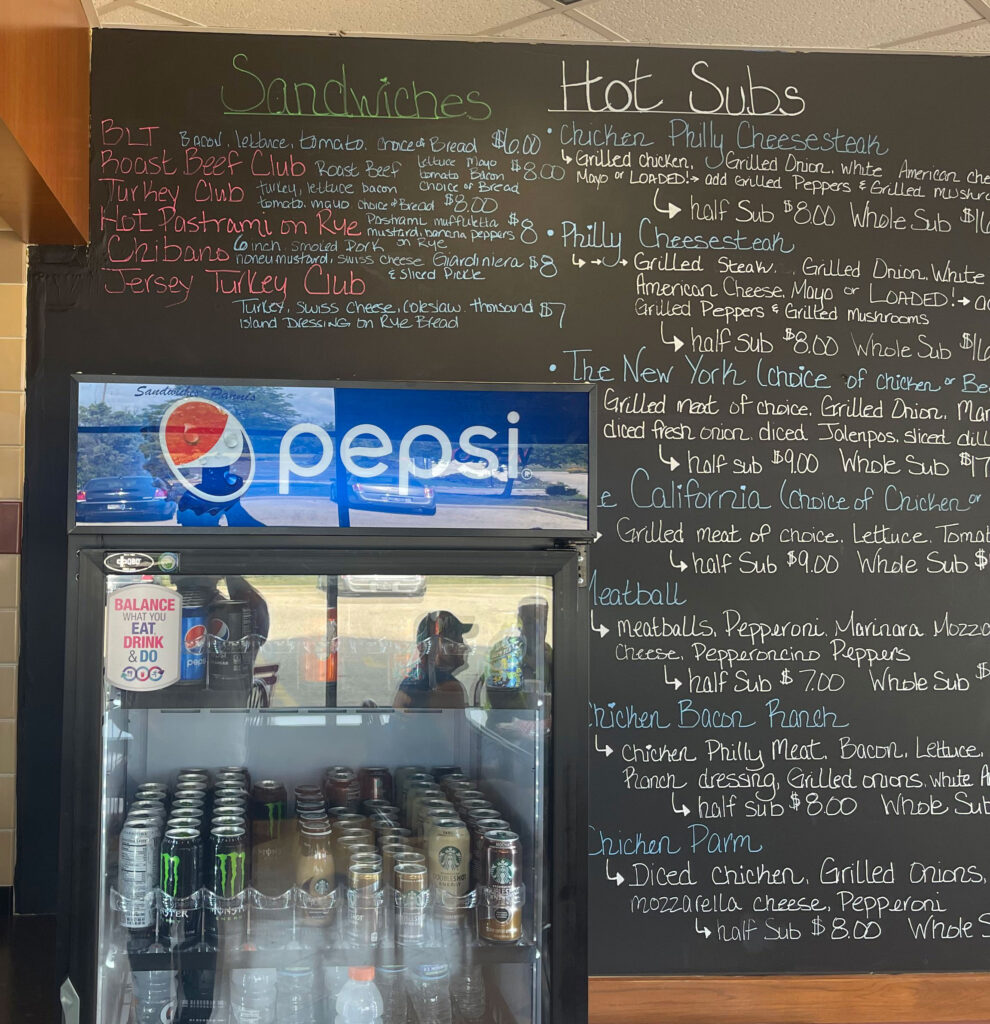 Sandwiches
BLT Bacon, lettuce, tomato, choice of Bread $6.00
Roast Beef Club Roast Beef lettuce Mayo tomato Bacon $8.00
Turkey Club turkey, lettuce bacon choice of Bread
tomato, mayo choice of Bread $8.00
Hot Pastrami on Rye Pastrami, muffuletta $8
mustard, banana peppers
Chibano 6 inch smoked Pork on Rye
honeymustard, swiss cheese Giardiniera $8
& Sliced Pickle
Jersey Turkey Club
Turkey, Swiss cheese, Coleslaw, thousand $7
island Dressing on Rye Bread
Hot Subs
• Chicken Philly Cheesesteak
Grilled chicken, Grilled Onion, white American che
Mayo or LOADED! → add Grilled Peppers & Grilled mushro
half Sub $8.00 Whole Sub $16
• Philly Cheesesteak
Grilled Steak, Grilled Onion, White
American Cheese, Mayo or LOADED! → ad
Grilled Peppers & Grilled Mushrooms
half Sub $8.00 Whole Sub $16
• The New York (choice of chicken or Be
Grilled meat of choice, Grilled Onion, Mar
diced fresh onion, diced Jalenpos, sliced dill
half sub $9.00 Whole Sub $17
e California (choice of Chicken or
Grilled meat of choice, Lettuce, Tomat
half Sub $9.00 Whole Sub $
Meatball
meatballs, Pepperoni, Marinara Mozza
cheese, Pepperoncino Peppers
half Sub $7.00 Whole Sub $
Chicken Bacon Ranch
Chicken Philly Meat, Bacon, Lettuce,
Ranch dressing, Grilled onions, white A
half sub $8.00 Whole Sub
Chicken Parm
Diced chicken, Grilled Onions,
mozzarella cheese, Pepperoni
half Sub $8.00 Whole S
Sandwiches Paninis
pepsi
BALANCE
WHAT YOU
EAT
DRINK
& DO
pepsi
MONSTER
STARBUCKS
DOUBLESHOT
ENERGY